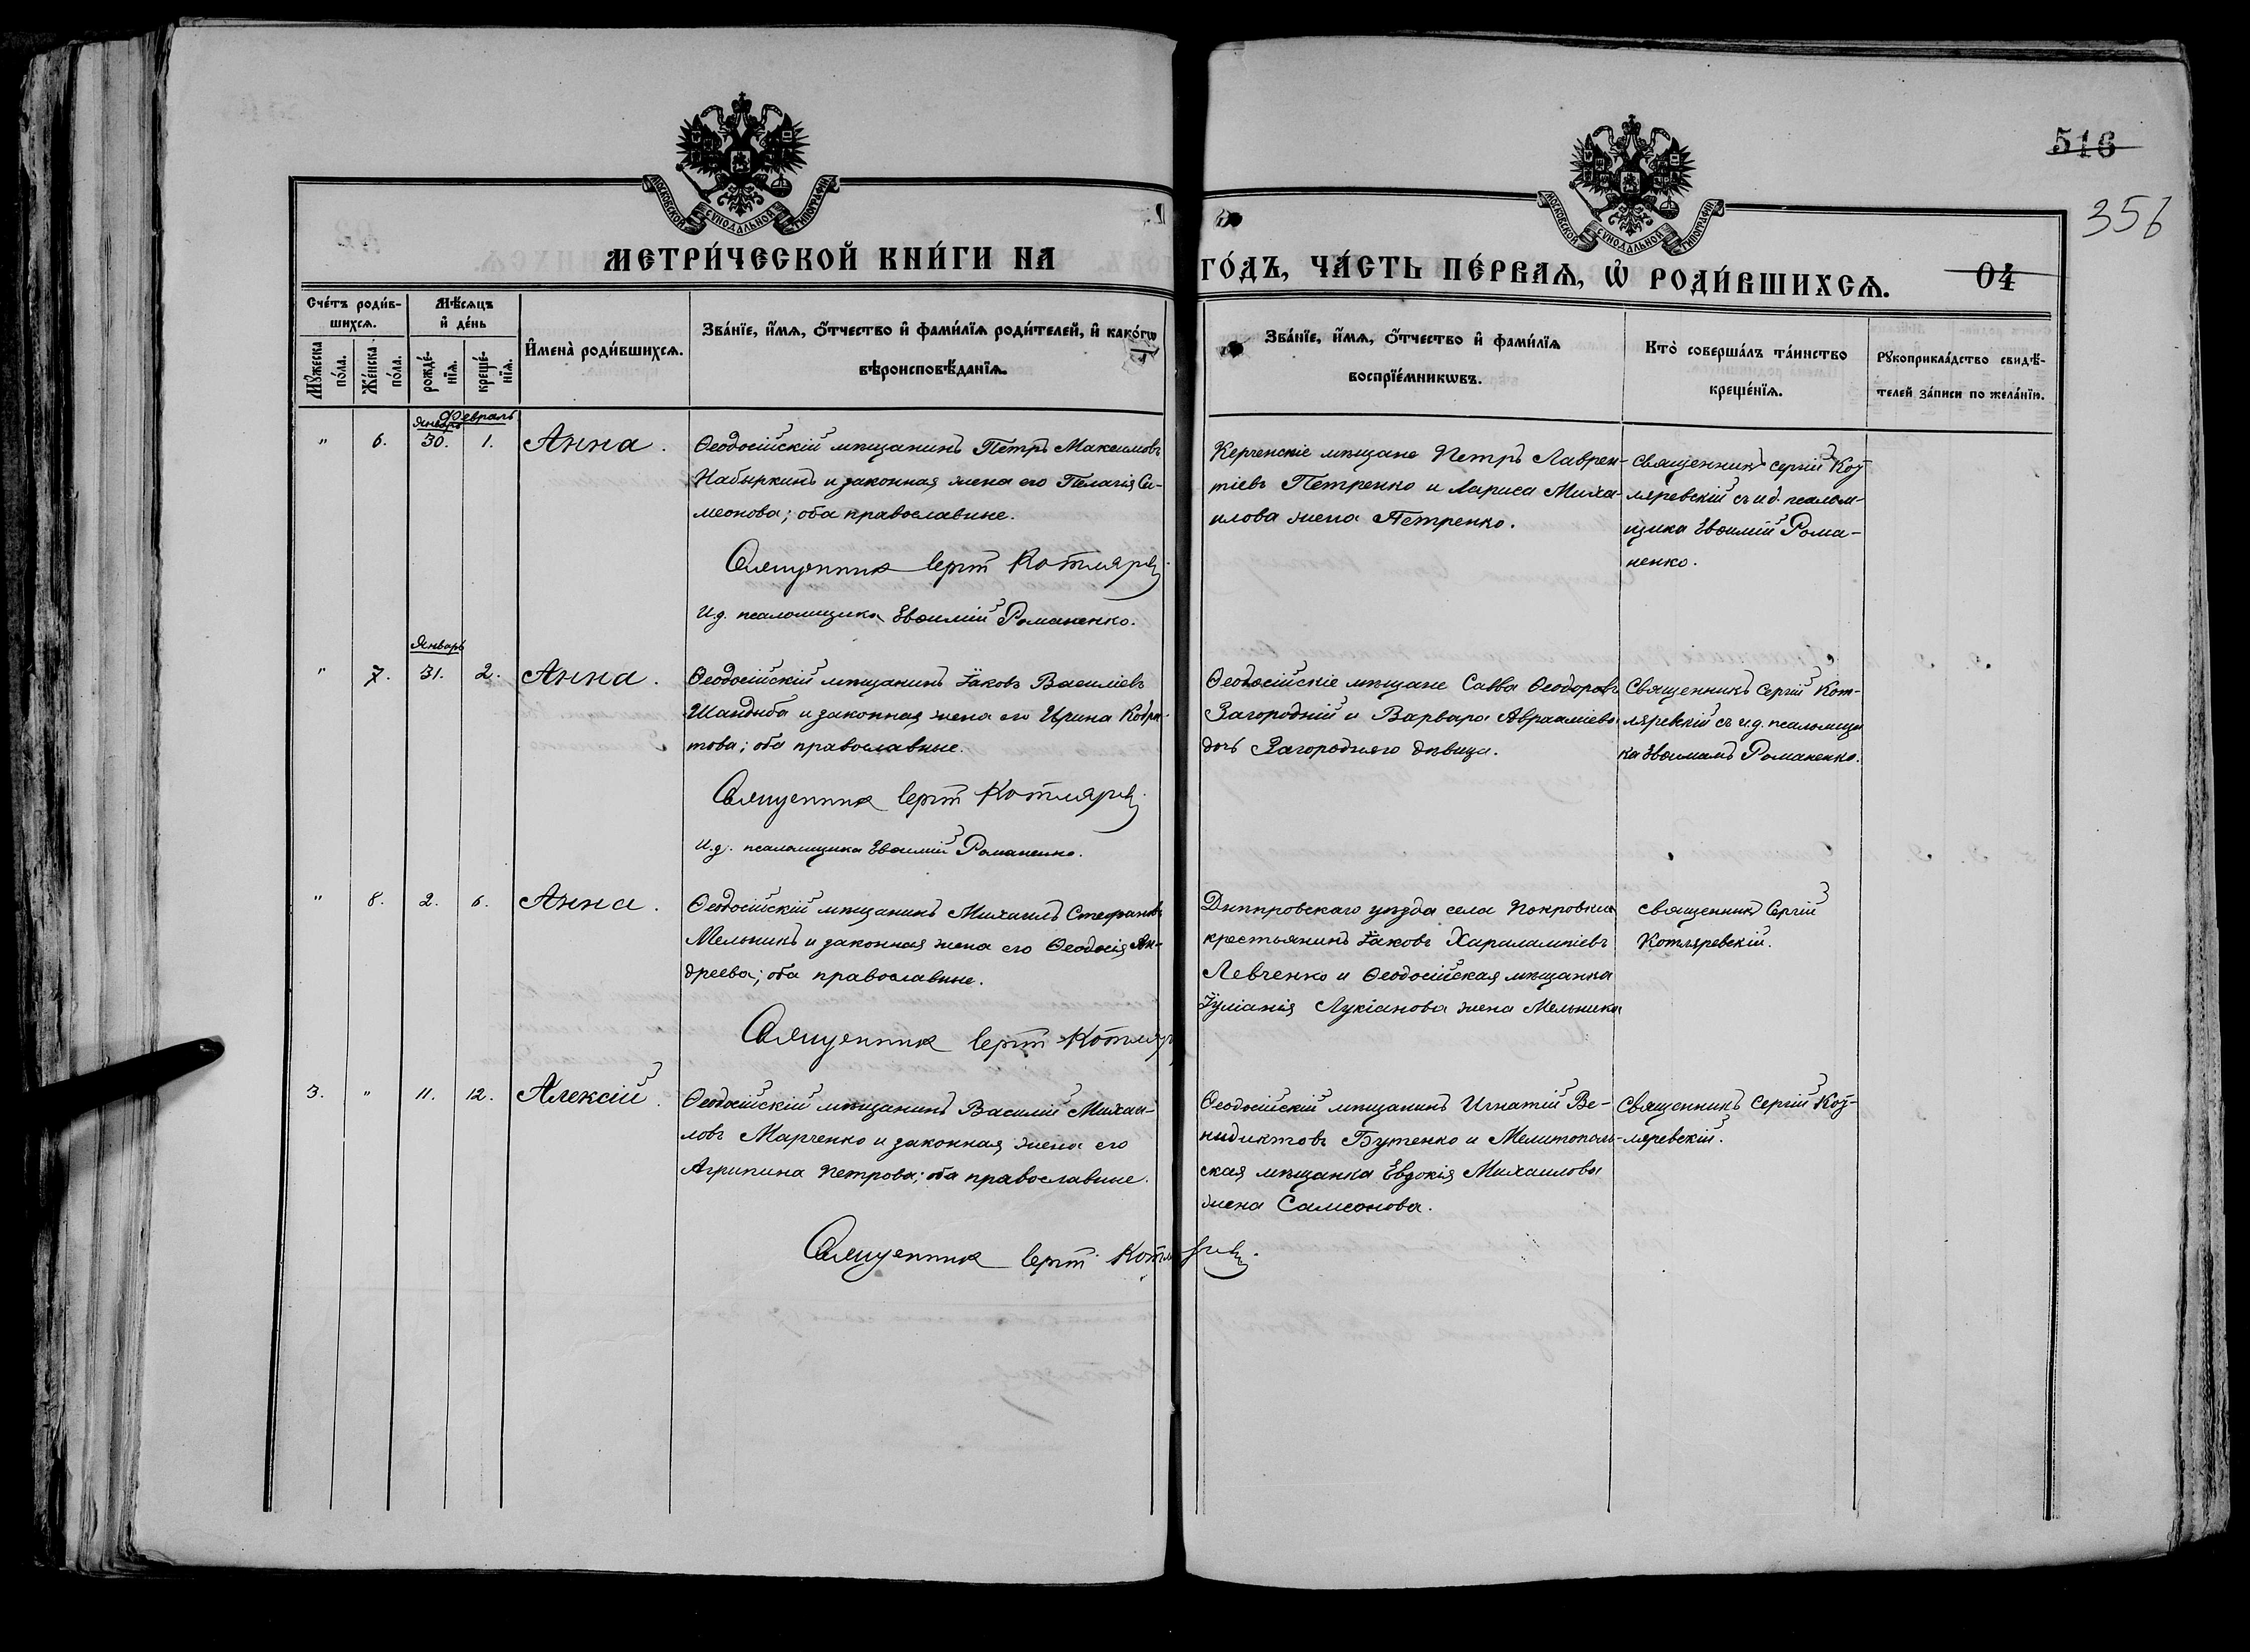 516
356
МОСКОВСКОЙ СѴНОДАЛЬНОЙ ТИПОГРАФІИ
МОСКОВСКОЙ СѴНОДАЛЬНОЙ ТИПОГРАФІИ
МЕТРИ́ЧЕСКОЙ КНИ́ГИ НА
ГО́ДЪ, ЧА́СТЬ ПЕ́РВАѦ, Ѡ҆ РОДИ́ВШИХСѦ.
04
Сче́тъ роди́в-
шихсѧ.
Мѣ́сѧцъ
и҆ де́нь
Мꙋ́жеска
по́ла.
Же́нска
по́ла.
рожде́-
нїѧ.
креще́-
нїѧ.
И҆мена̀ роди́вшихсѧ.
Зва́нїе, и҆́мѧ, ѻ҆́тчество и҆ фами́лїѧ роди́телей, и҆ како́гѡ
вѣроисповѣ́данїѧ.
Зва́нїе, и҆́мѧ, ѻ҆́тчество и҆ фами́лїѧ
воспрїе́мникѡвъ.
Кто̀ соверша́лъ та́инство
креще́нїѧ.
Рꙋкоприкла́дство свидѣ́-
телей за́писи по жела́нїю.
Февраль
Январь
" 6. 30. 1. Анна.
Ѳеодосійскій мѣщанинъ Петръ Максимовъ
Набыркинъ и законная жена его Пелагія Си-
меонова; оба православные.
Священникъ Сергій Котляревскій
И.д. псаломщика Евѳимій Романенко.
Керченскіе мѣщане Петръ Лаврен-
тіевъ Петренко и Лариса Миха-
илова жена Петренко.
Священникъ Сергій Кот-
ляревскій съ и.д. псалом-
щика Евѳимій Рома-
ненко.
Январь
" 7. 31. 2. Анна.
Ѳеодосійскій мѣщанинъ Іаковъ Василіевъ
Шандыба и законная жена его Ирина Кодра-
това; оба православные.
Священникъ Сергій Котляревскій
И.д. псаломщика Евѳимій Романенко.
Ѳеодосійскіе мѣщане Савва Ѳеодоровъ
Загородній и Варвара Аврааміева
дочь Загородняго дѣвица.
Священникъ Сергій Кот-
ляревскій съ и.д. псаломщи
ка Евѳимамъ Романенко.
" 8. 2. 6. Анна.
Ѳеодосійскій мѣщанинъ Михаилъ Стефановъ
Мельникъ и законная жена его Ѳеодосія Ан-
дреева; оба православные.
Священникъ Сергій Котляр
Днѣпровскаго уѣзда села Покровки
крестьянинъ Іаковъ Харалампіевъ
Левченко и Ѳеодосійская мѣщанка
Іуліанія Лукіанова жена Мельника
Священникъ Сергій
Котляревскій.
3. " 11. 12. Алексій.
Ѳеодосійскій мѣщанинъ Василій Михаи-
ловъ Марченко и законная жена его
Агрипина Петрова; оба православные.
Священникъ Сергій Котляревскій
Ѳеодосійскій мѣщанинъ Игнатій Ве-
нидиктовъ Бутенко и Мелитополь-
ская мѣщанка Евдокія Михаилова
жена Самсонова.
Священникъ Сергій Кот-
ляревскій.